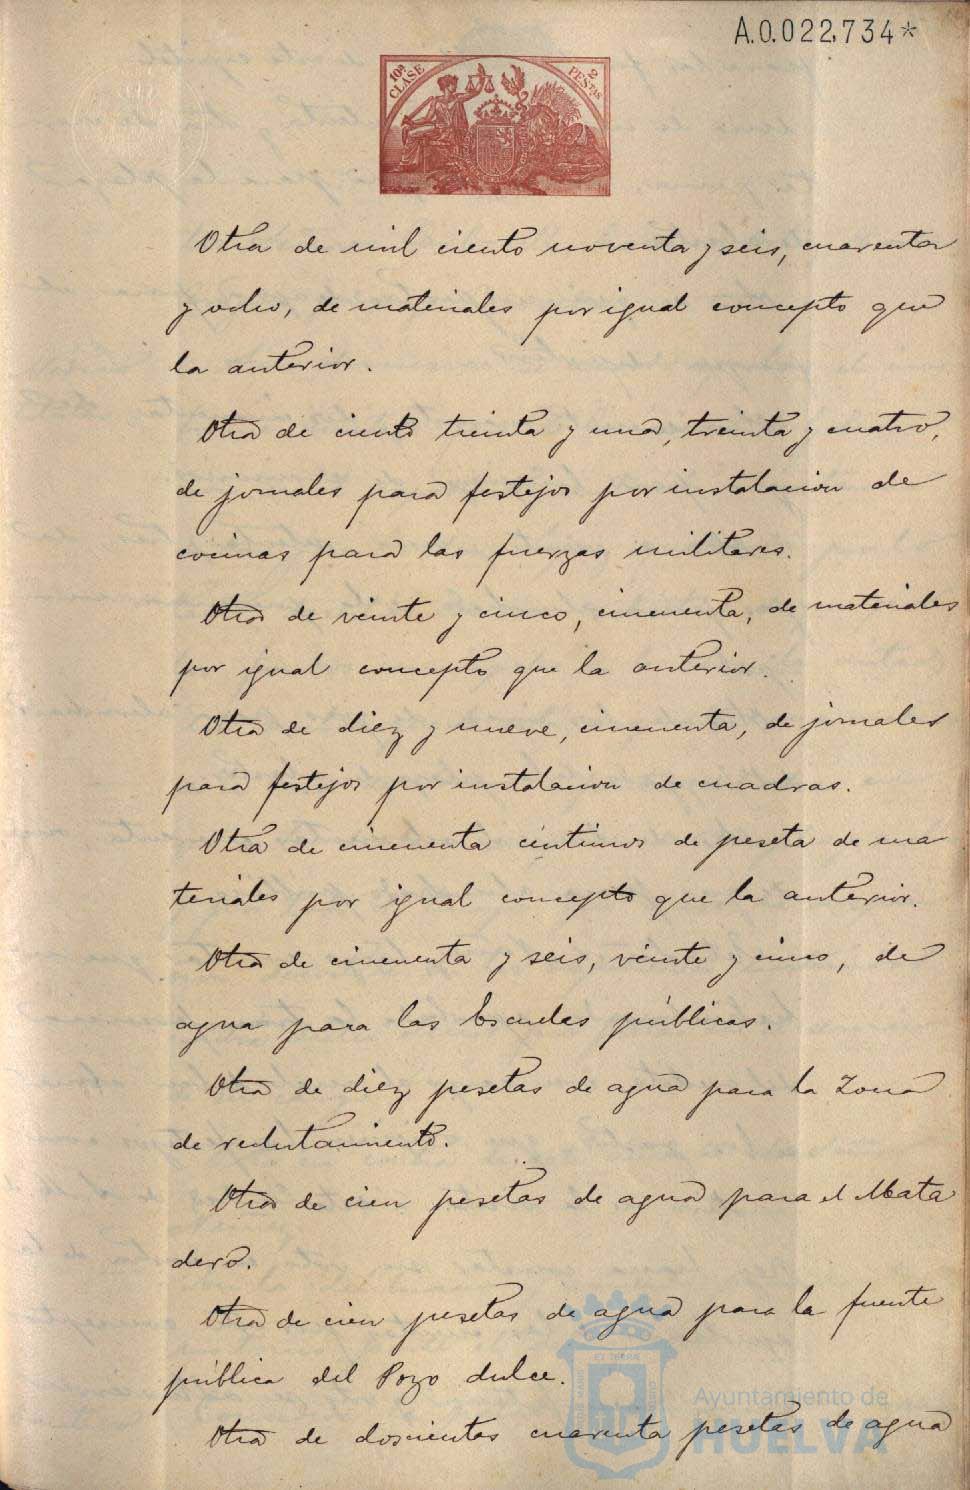 A.0.022,734*
10ª CLASE
2 PESTAS
Otra de mil ciento noventa y seis, cuarenta
y ocho, de materiales por igual concepto que
la anterior.
Otra de ciento treinta y una, treinta y cuatro,
de jornales para festejos por instalacion de
cocinas para las fuerzas militares.
Otra de veinte y cinco, cincuenta, de materiales
por igual concepto que la anterior.
Otra de diez y nueve, cincuenta, de jornales
para festejos por instalacion de cuadras.
Otra de cincuenta centimos de peseta de ma
teriales por igual concepto que la anterior.
Otra de cincuenta y seis, veinte y cinco, de
agua para las Escuelas públicas.
Otra de diez pesetas de agua para la Zona
de reclutamiento.
Otra de cien pesetas de agua para el Mata
dero.
Otra de cien pesetas de agua para la fuente
pública del Pozo dulce.
Otra de doscientas cuarenta pesetas de agua
Ayuntamiento de
HUELVA